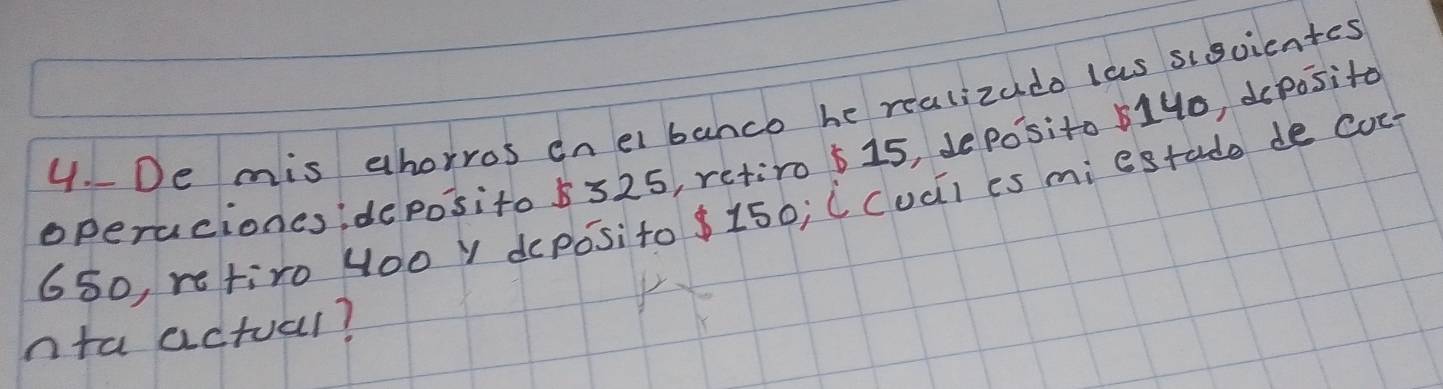 4.- De mis ahorros en el banco he realizado las siguientes
operaciones: deposito $ 325, retiro $ 15, deposito $140, deposito
650, retiro 400 y deposito $ 150; ¿Cuál es mi estado de cue-
nta actual?